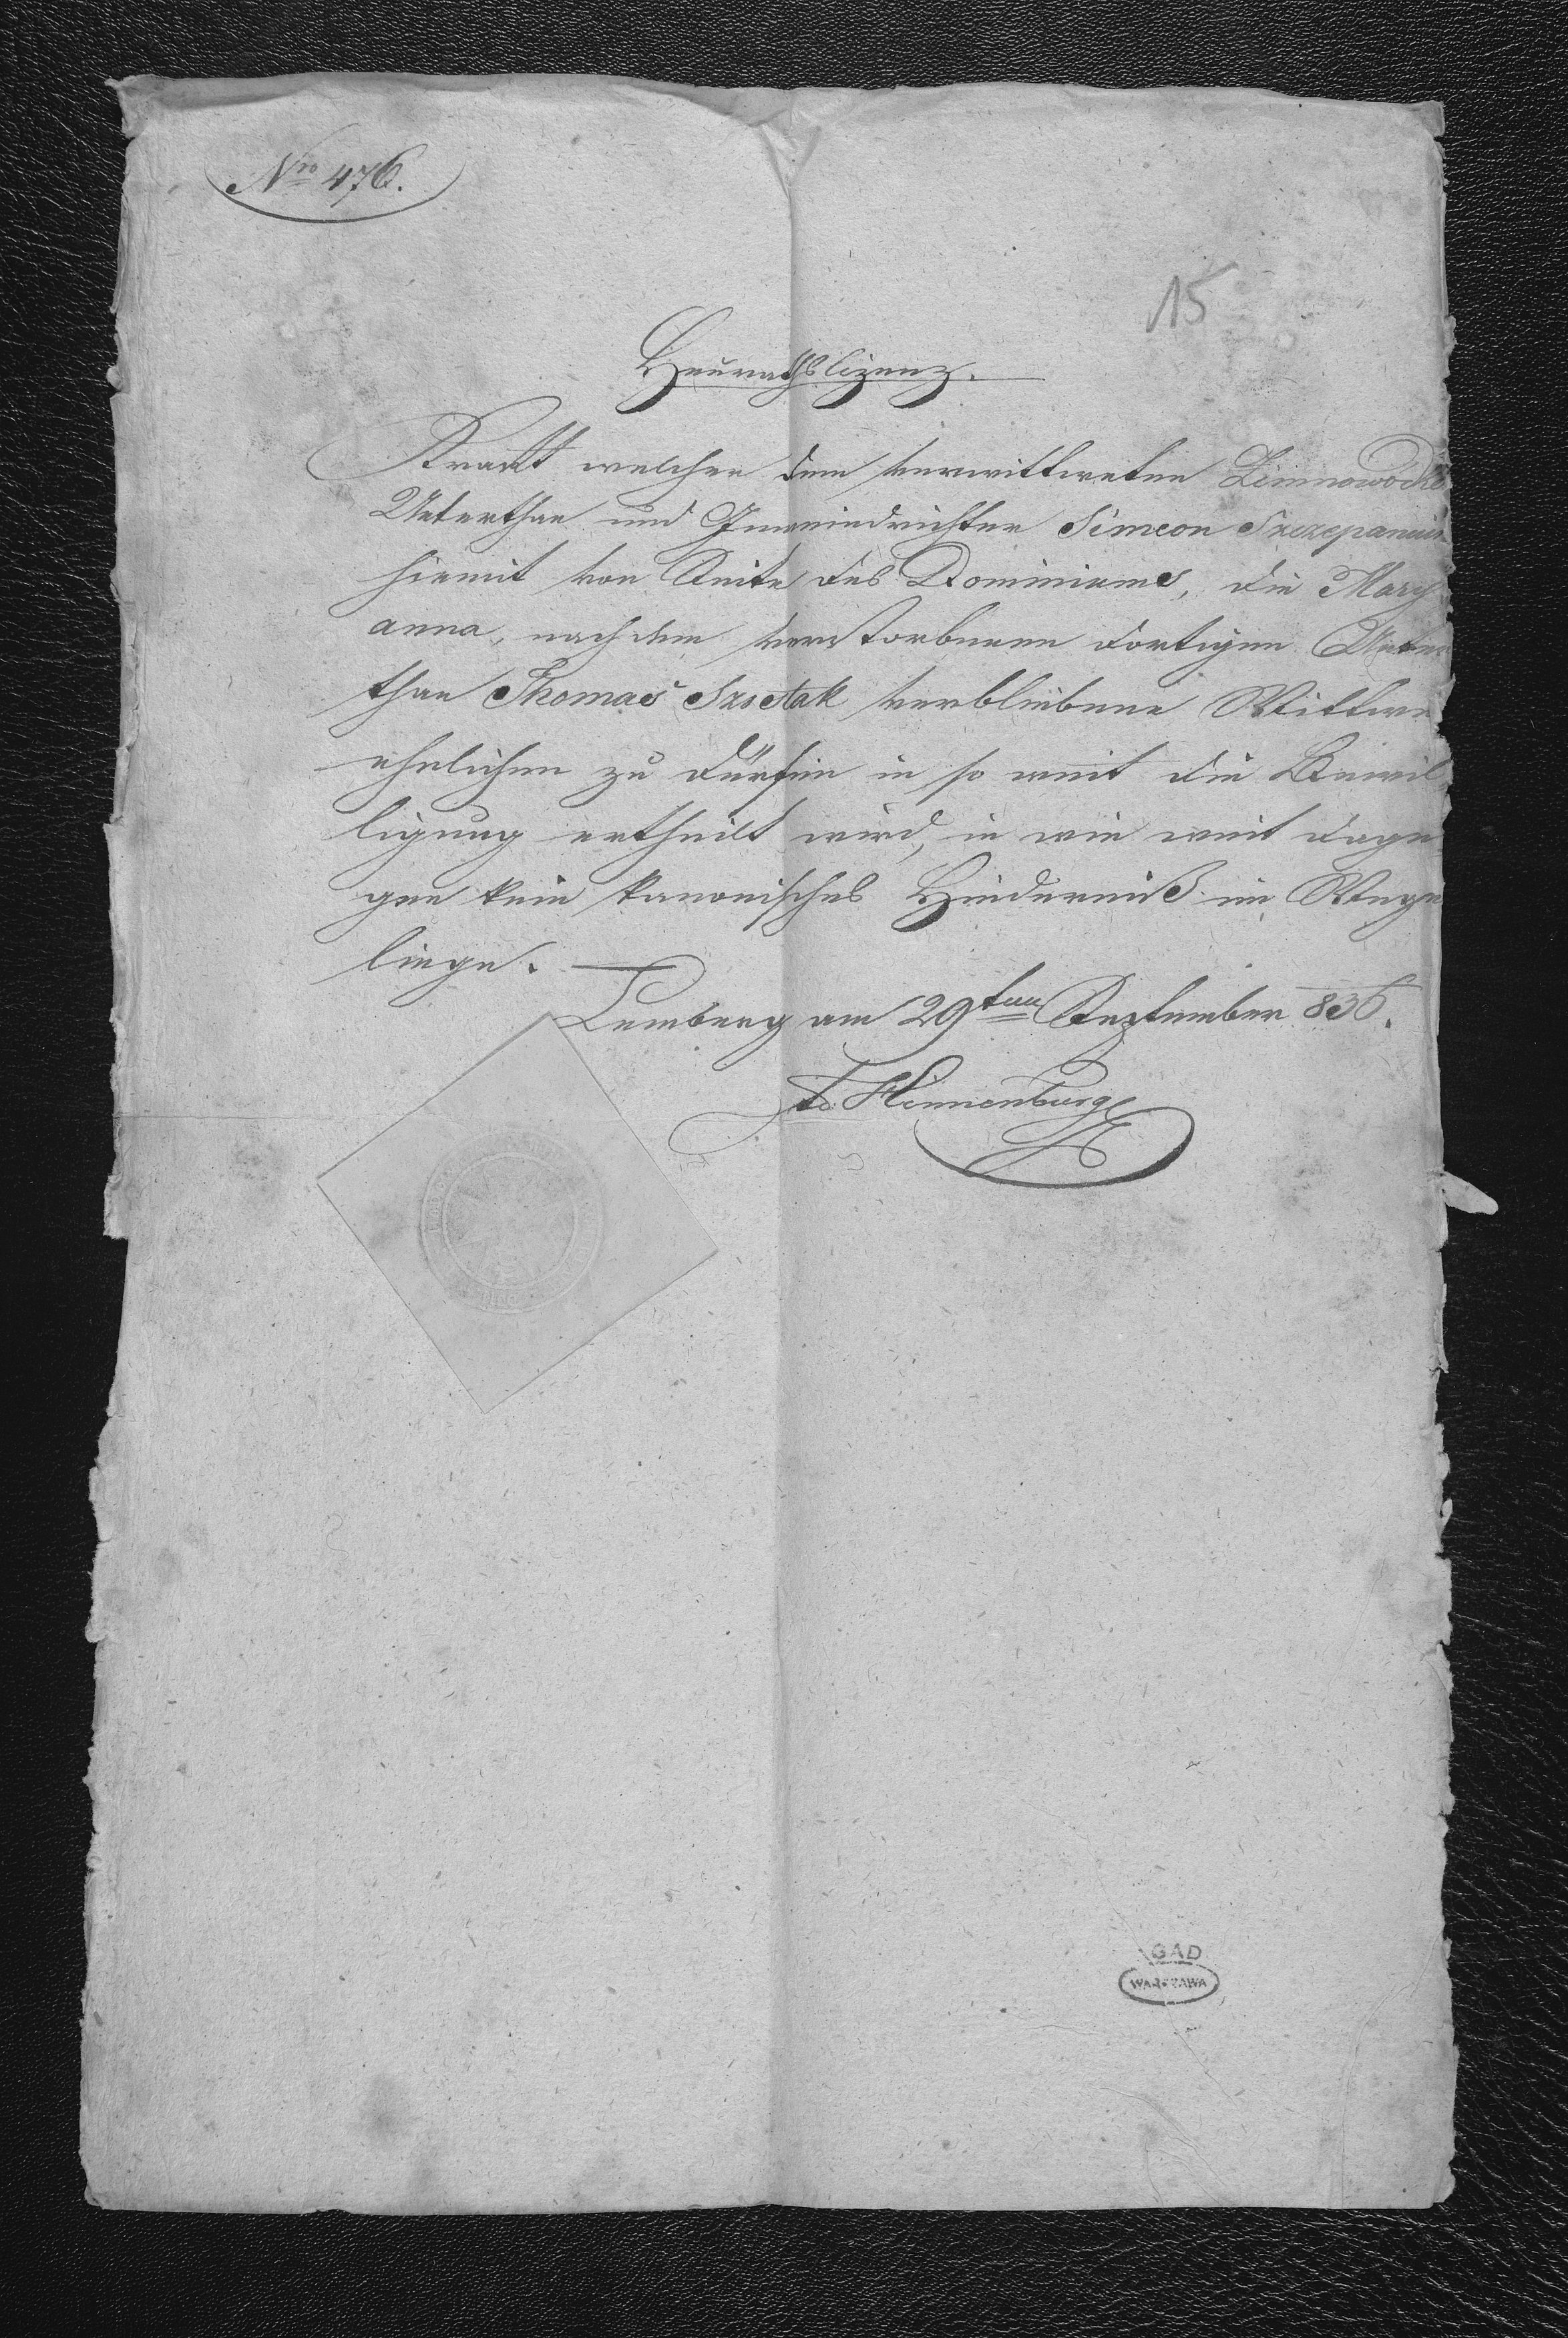 Nro 476.
15
Heurathslizenz.
Kraft welcher dem verwittweten Zimnowodker
Unterthan und Gemeindrichter Simeon Szczepaniuk
hiemit von Seite des Dominiums, die Mary
anna, nach dem verstorbenen dortigen Unter
than Thomas verbliebene Wittwe
ehelichen zu dürfen in so weit die Bewil
ligung ertheilt wird, in wie weit dage
gen kein kanonisches Hinderniß im Wege
liege.
Lemberg am 29ten September 836.
AGAD
WARSZAWA